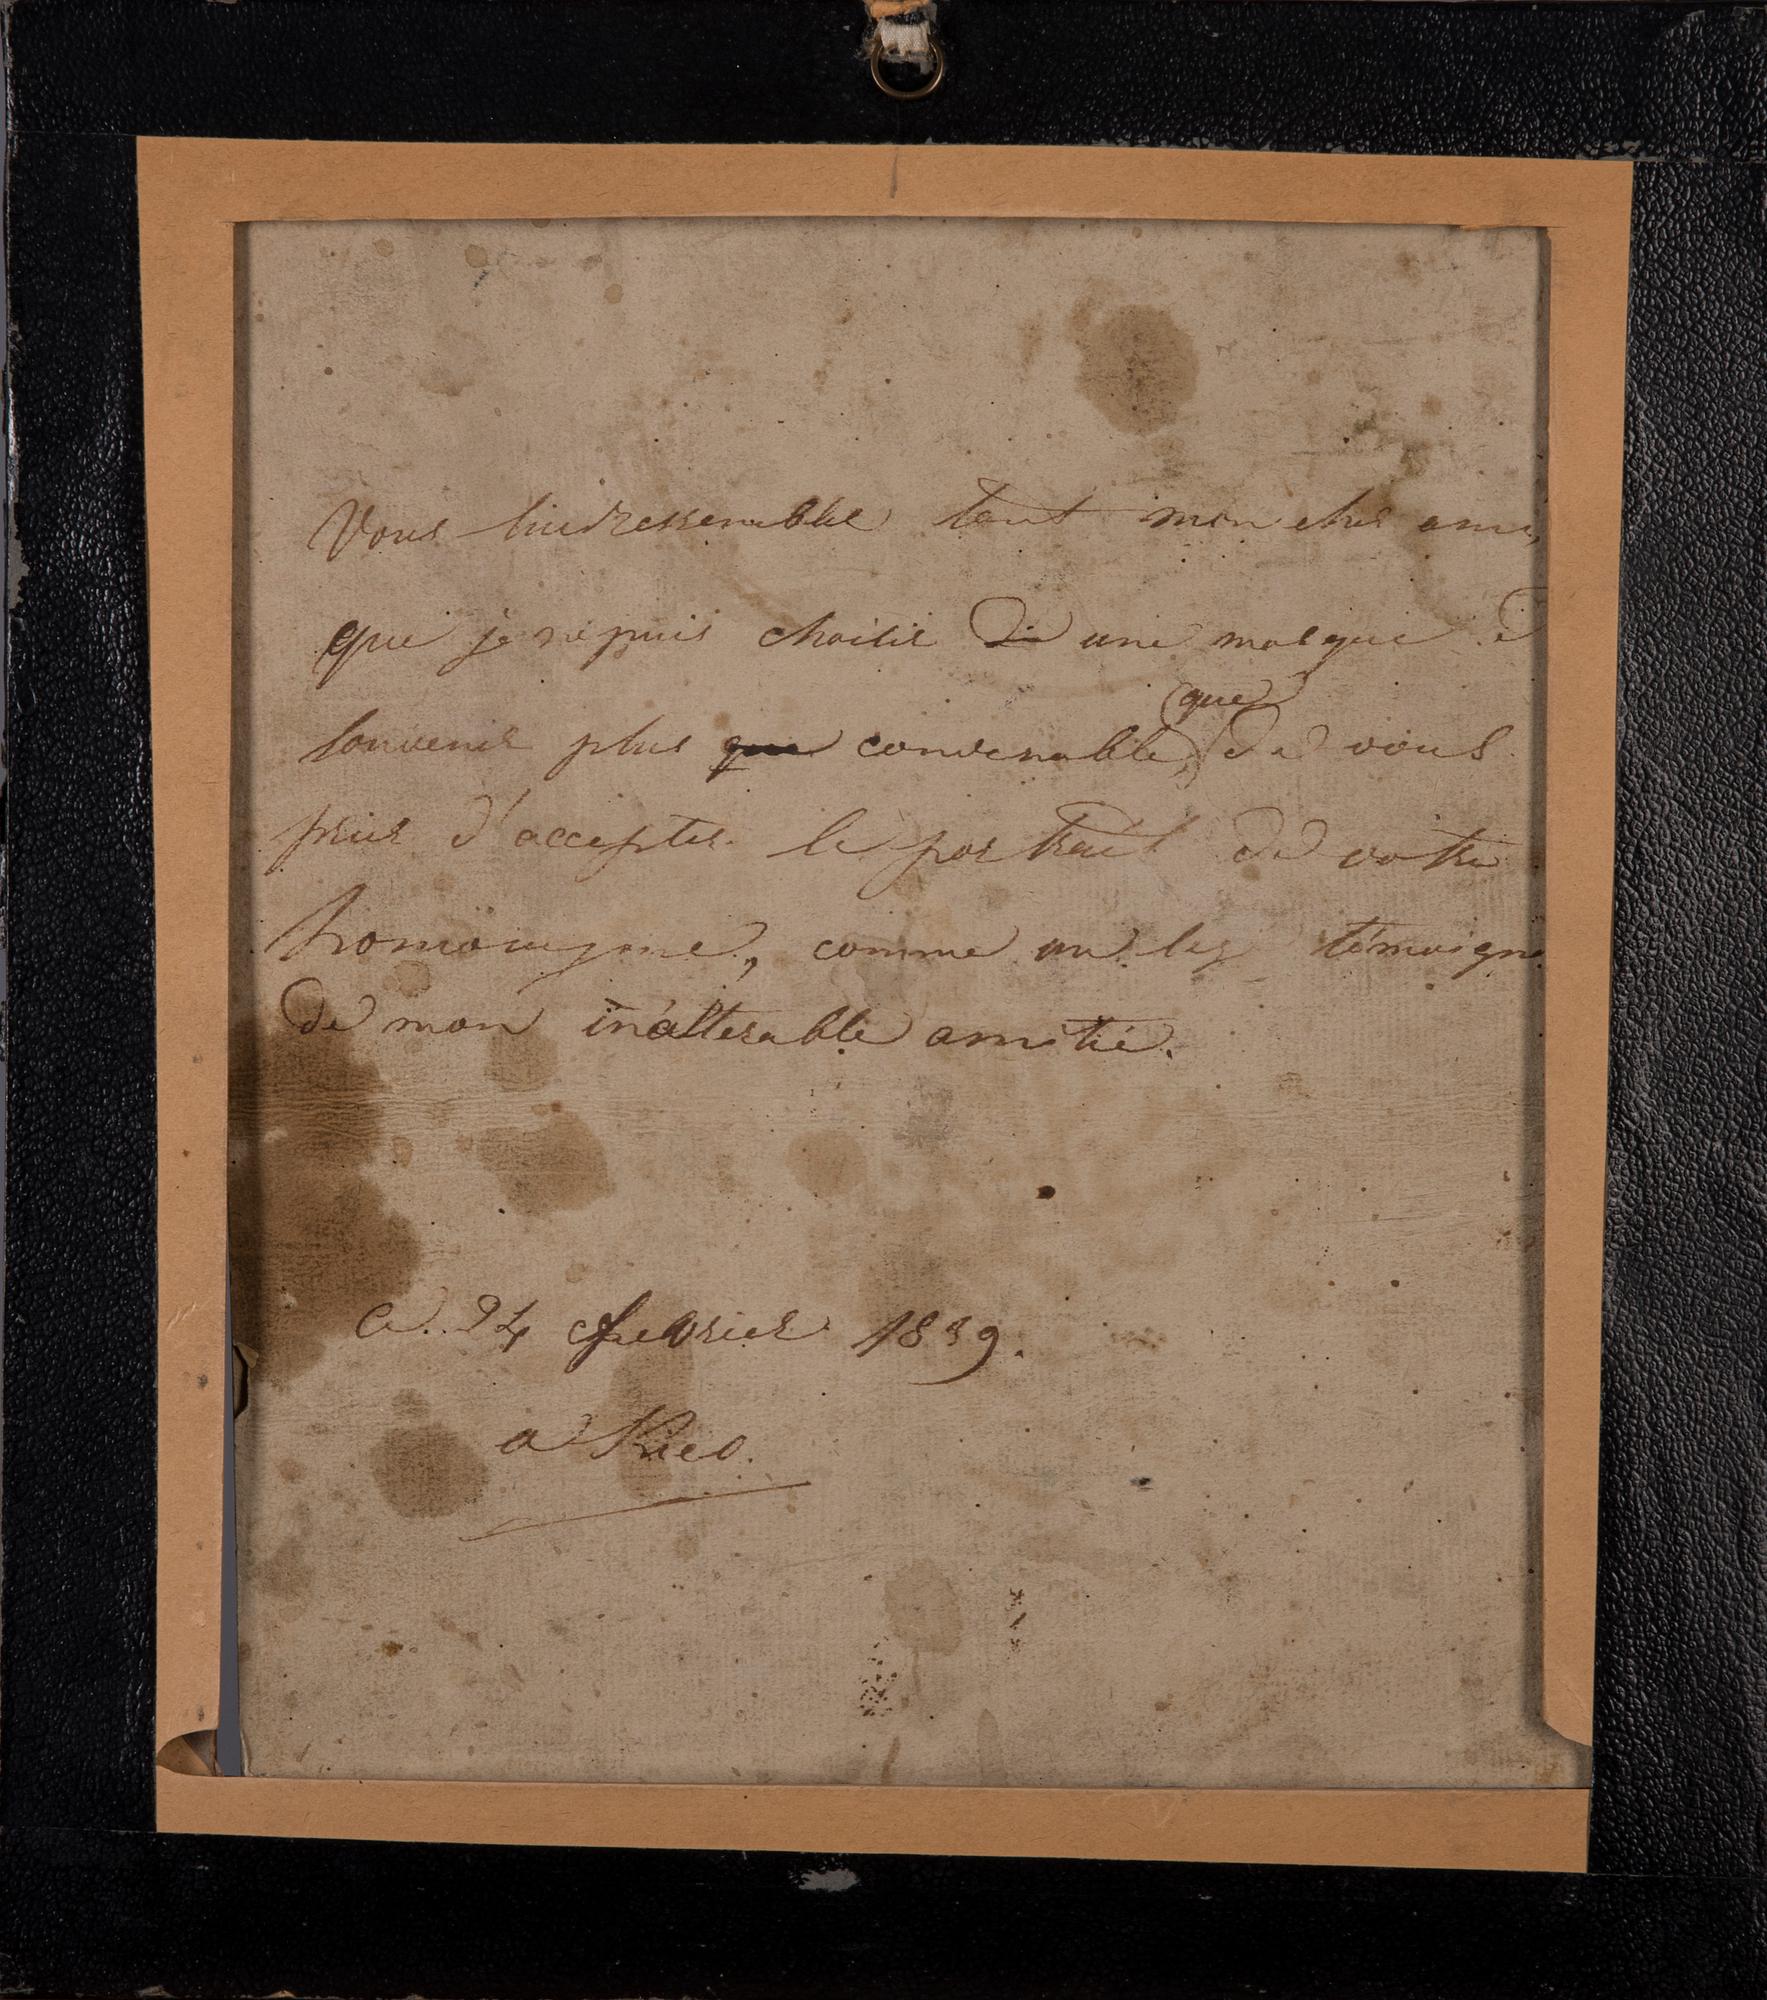 Vous lui ressemblée tant mon cher ami,
que je ne puis choisir de une marque d
souvenir plus que convenable, que de vous
prier d'accepter le portrait de votre
homonyme, comme un témoign
de mon inalterable amitié.
Ce 24 fevrier 1839.
a Kieo.